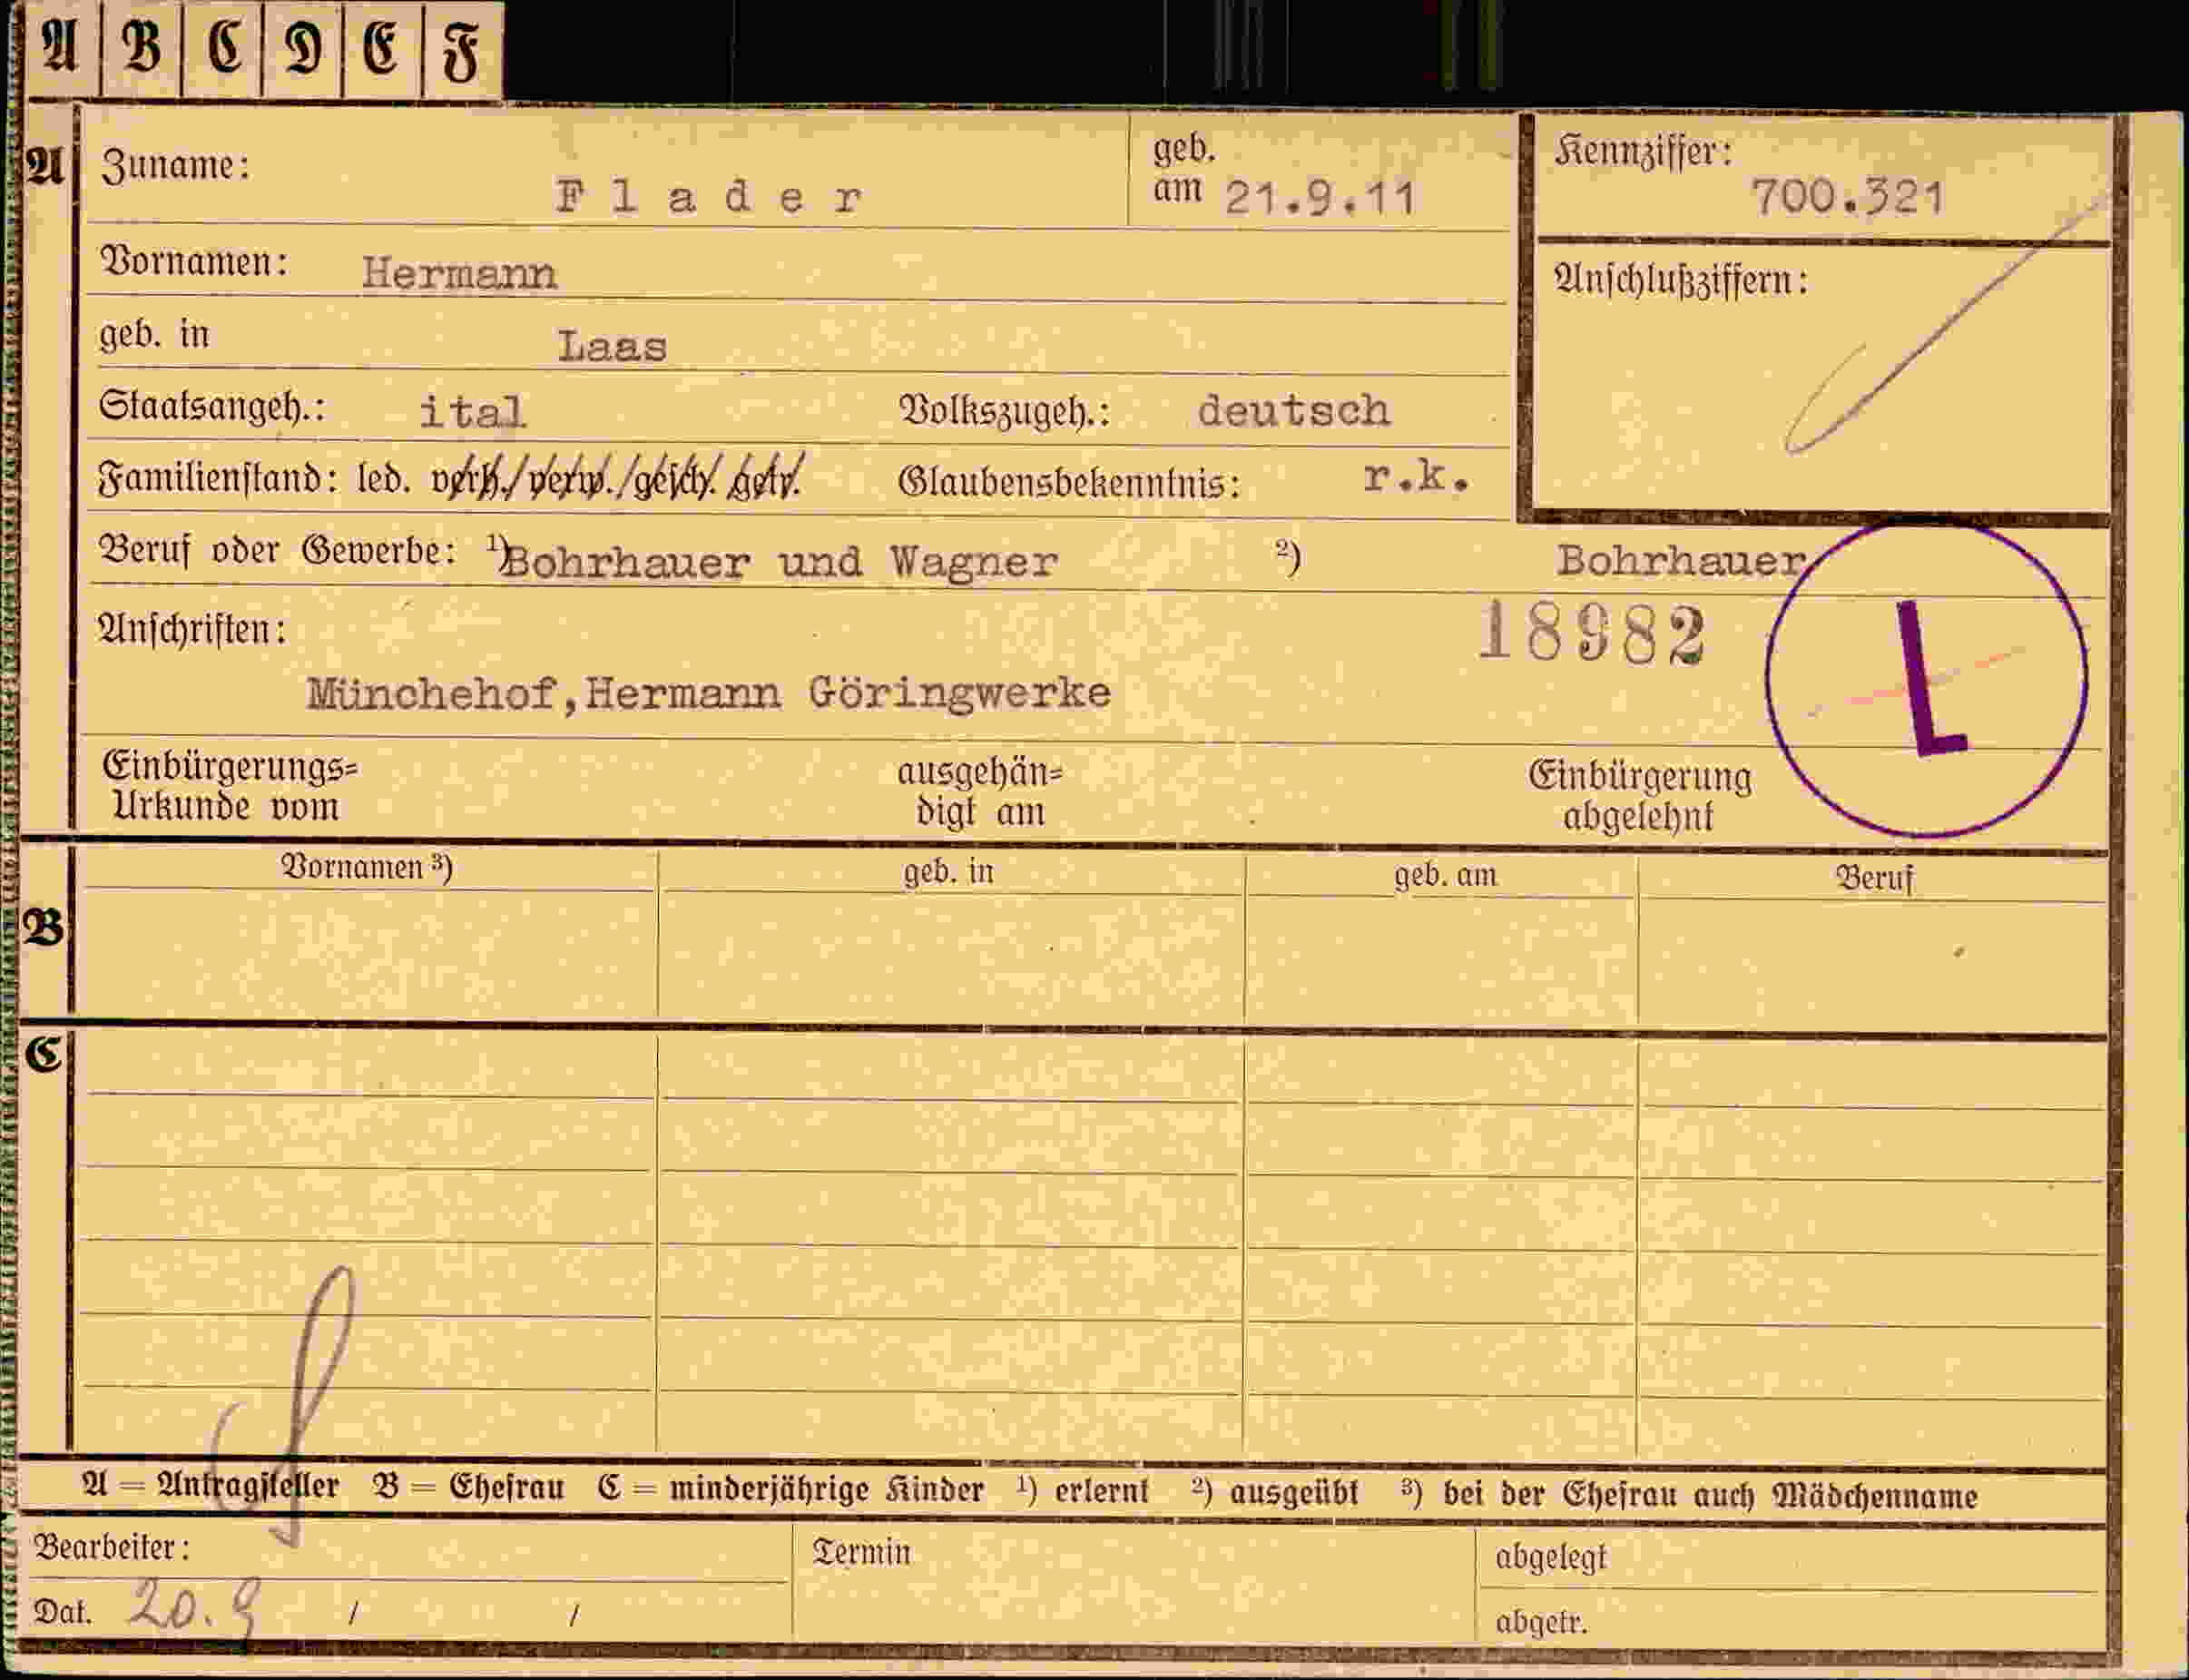 A B C D E F
A Zuname: Flader geb. am 21.9.11 Kennziffer: 700.321
Vornamen: Hermann Anschlußziffern:
geb. in Laas
Staatsangeh.: ital Volkszugeh.: deutsch
Familienstand: led. verh./verw./gesch. getr. Glaubensbekenntnis: r.k.
Beruf oder Gewerbe: ¹) Bohrhauer und Wagner ²) Bohrhauer
Anschriften: 18982 L
Münchehof, Hermann Göringwerke
Einbürgerungs= ausgehän= Einbürgerung
Urkunde vom digt am abgelehnt
Vornamen ³) geb. in geb. am Beruf
B
C
A = Antragsteller B = Ehefrau C = minderjährige Kinder ¹) erlernt ²) ausgeübt ³) bei der Ehefrau auch Mädchenname
Bearbeiter: Termin abgelegt
Dat. 20.9 / / abgetr.